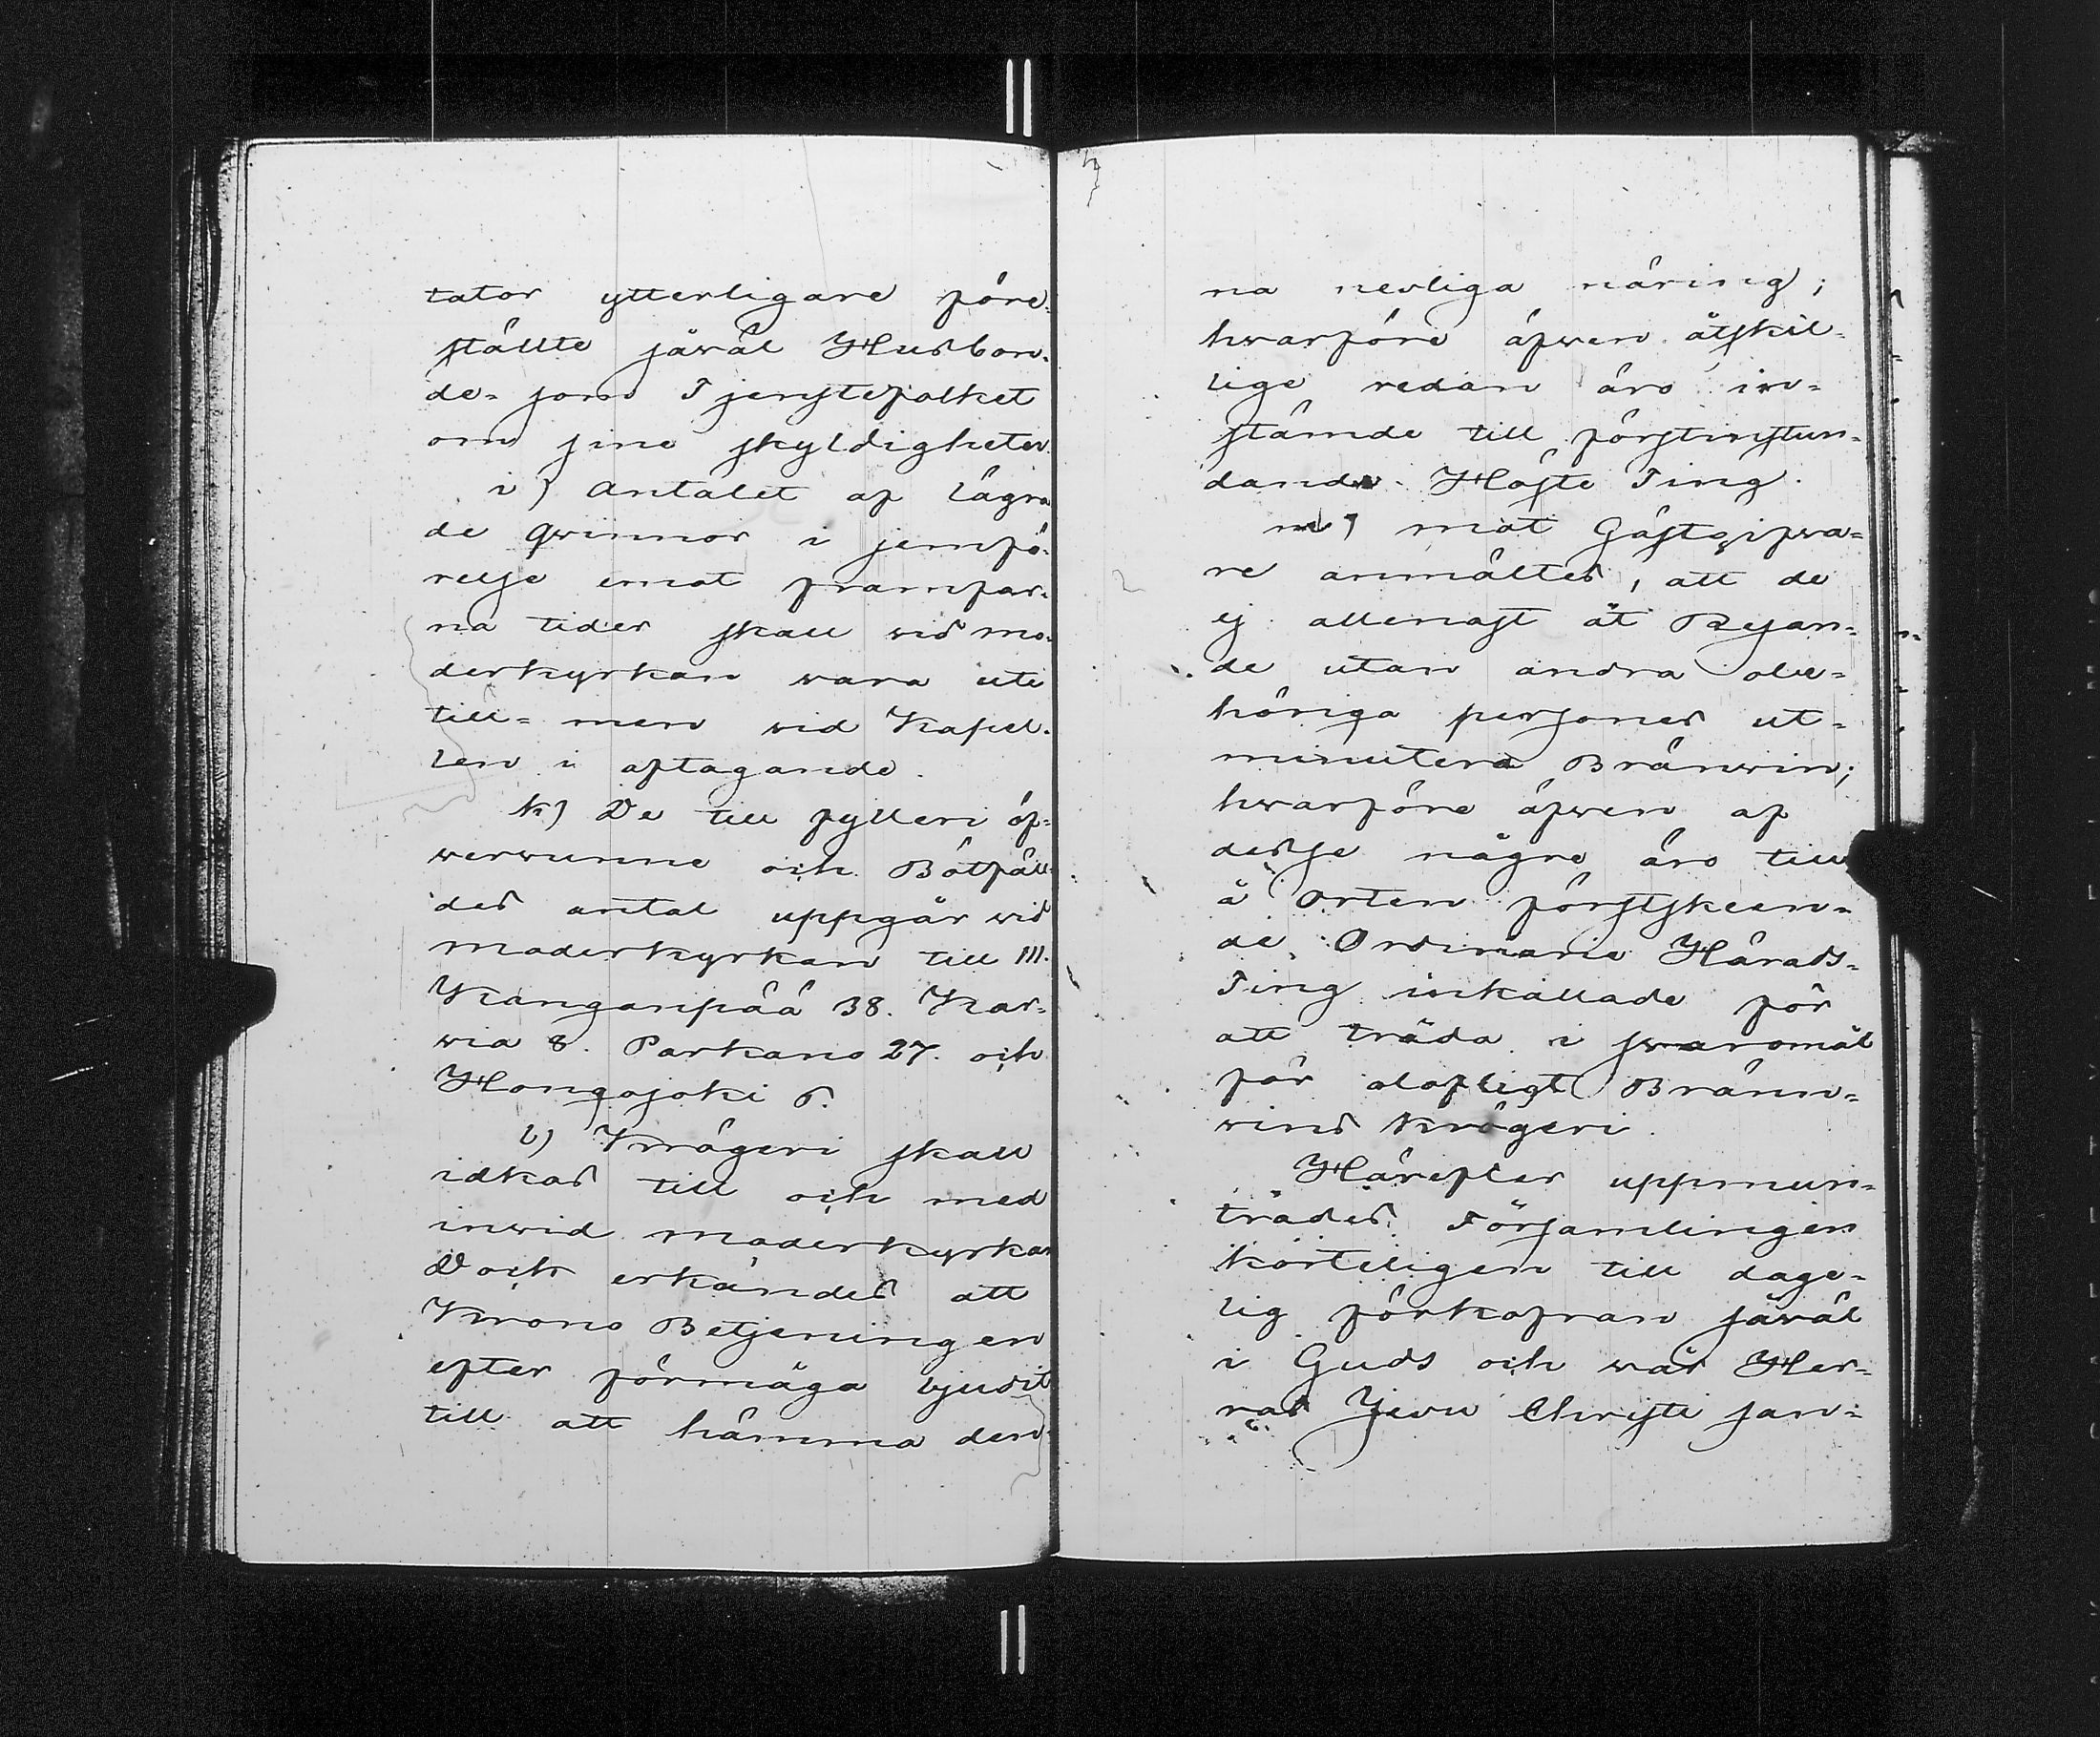 tator ytterligare före-
ställte såväl Husbon-
de- som Tjenstefolket
om sine skyldigheter.
i) Antalet af lägra-
de qwinnor i jemfö-
relse emot framfar-
na tider skall wid mo-
derkyrkan wara ute
till- men wid Kapel-
len i aftagande.
k) De till fylleri öf-
werwunne och Bötfäll-
des antal uppgår wid
moderkyrkan till 111.
Kanganpää 38. Kar-
wia 8. Parkano 27. och
Hongojoki 6.
l) Krögeri skall
idkas till och med
inwid moderkyrkan
Doch erkändes att
Krono Betjeningen
efter förmåga bjudit
till att hämma den-
na nesliga näring;
hwarföre äfwen åtskil-
lige redan äro in-
stämde till förstinstun-
dande Höste Ting.
m) mot Gästgifwa-
re anmältes, att de
ej allenast åt Resan-
de utan andra obe-
höriga persones ut-
minutera Bränwin;
hwarföre äfwen af
desse någre äro till
å Orten förstskeen-
de Ordinarie Härads-
Ting inkallade för
att träda i swaromål
för olofligt Bränn-
wins krögeri.
Härefter uppmun-
trades Församlingen
korteligen till dage-
lig förkofran såwäl
i Guds och wår Her-
ras Jesu Christi san-